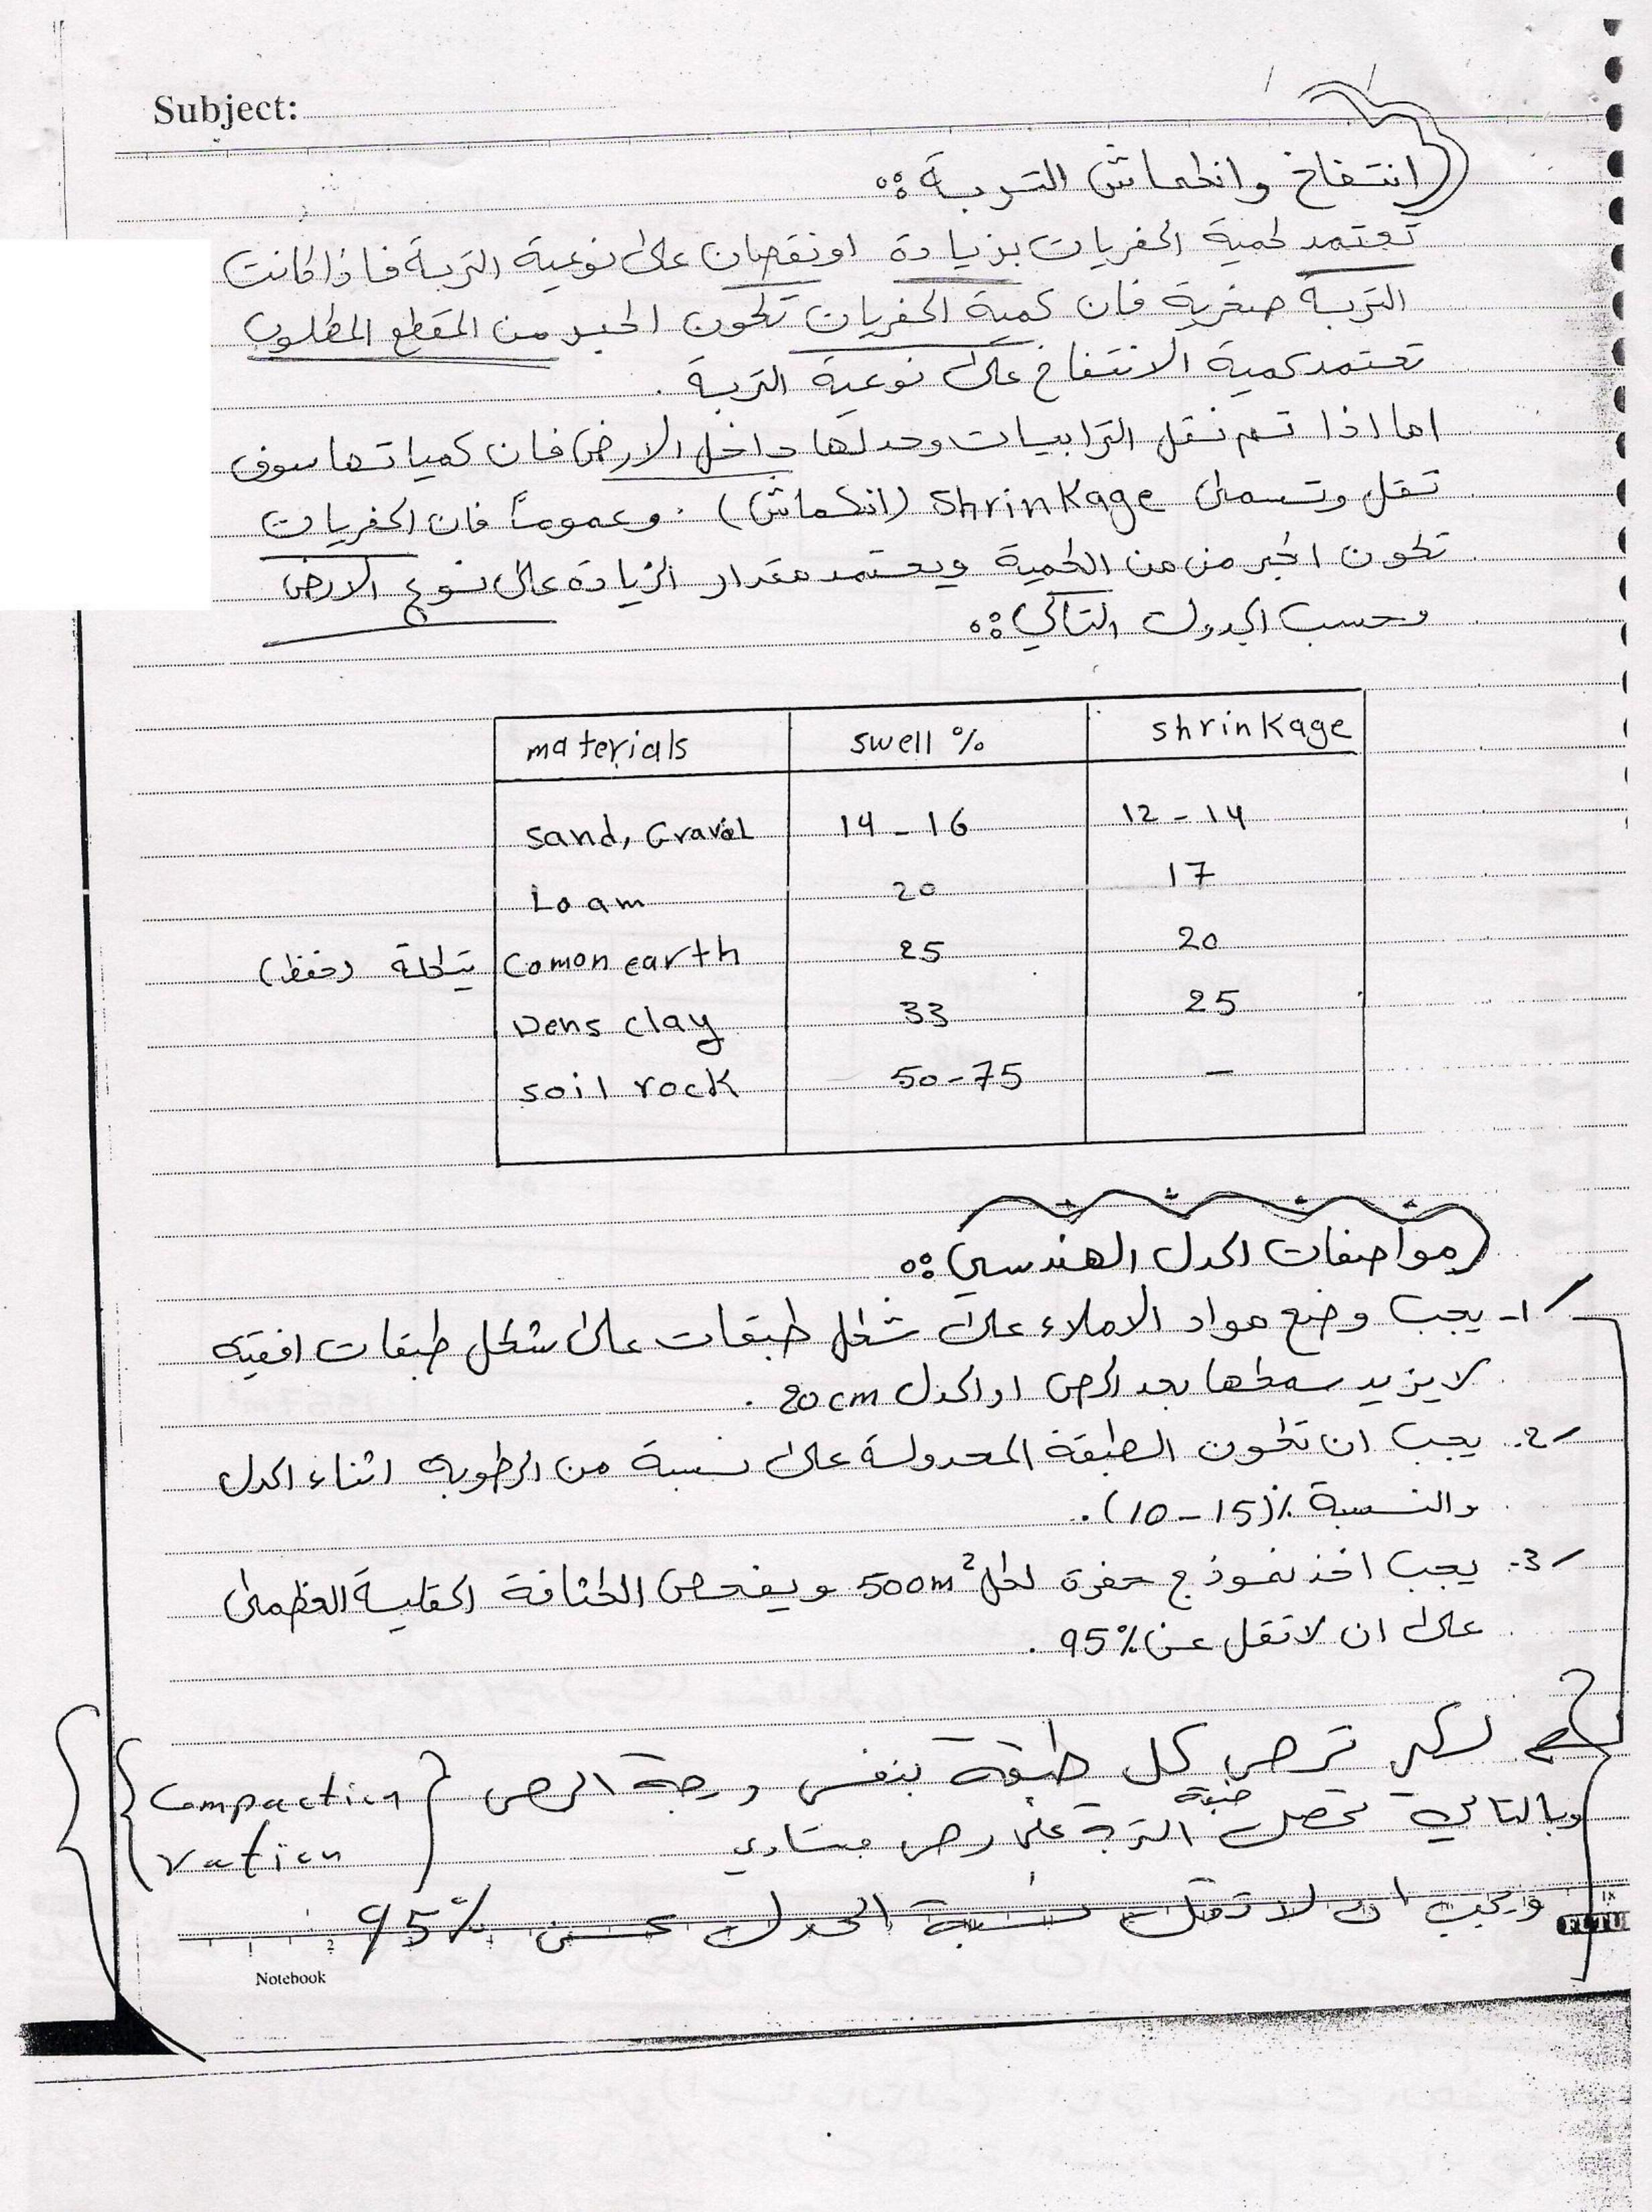 Subject:
انتفاخ وانكماش التربة :
تعتمد كمية الحفريات بزيادة او نقصان على نوعية التربة فاذا كانت
التربة صخرية فان كمية الحفريات تكون اكبر من المقطع المطلوب
تعتمد كمية الانتفاخ على نوعية التربة .
اما اذا تم نقل الترابيات وحدلها داخل الارض فان كمياتها سوف
تقل وتسمى Shrinkage (انكماش) . وعموماً فان الحفريات
تكون اكبر من من الكمية ويعتمد مقدار الزيادة على نوع الارض
وحسب الجدول التالي :
materials swell % shrinkage
sand, Gravel 14 - 16 12 - 14
Loam 20 17
Comon earth 25 20
(حفظ)
Dens clay 33 25
soil rock 50-75 -
مواصفات الحدل الهندسي :
1- يجب وضع مواد الاملاء على شكل طبقات على شكل طبقات افقيه
لا يزيد سمكها بعد الرص او الحدل 20cm .
2- يجب ان تكون الطبقة المحدولة على نسبة من الرطوبه اثناء الحدل
والنسبة %(10-15) .
3- يجب اخذ نموذج حفرة لكل 500m² ويفحص الكثافة الحقلية العظمى
على ان لا تقل عن 95% .
لكي ترص كل طبقة بنفس درجة الرص {Compaction
وبالتالي تحصل التربة على رص متساوي
ويجب ان لا تقل نسبة الحدل عن 95%
Notebook